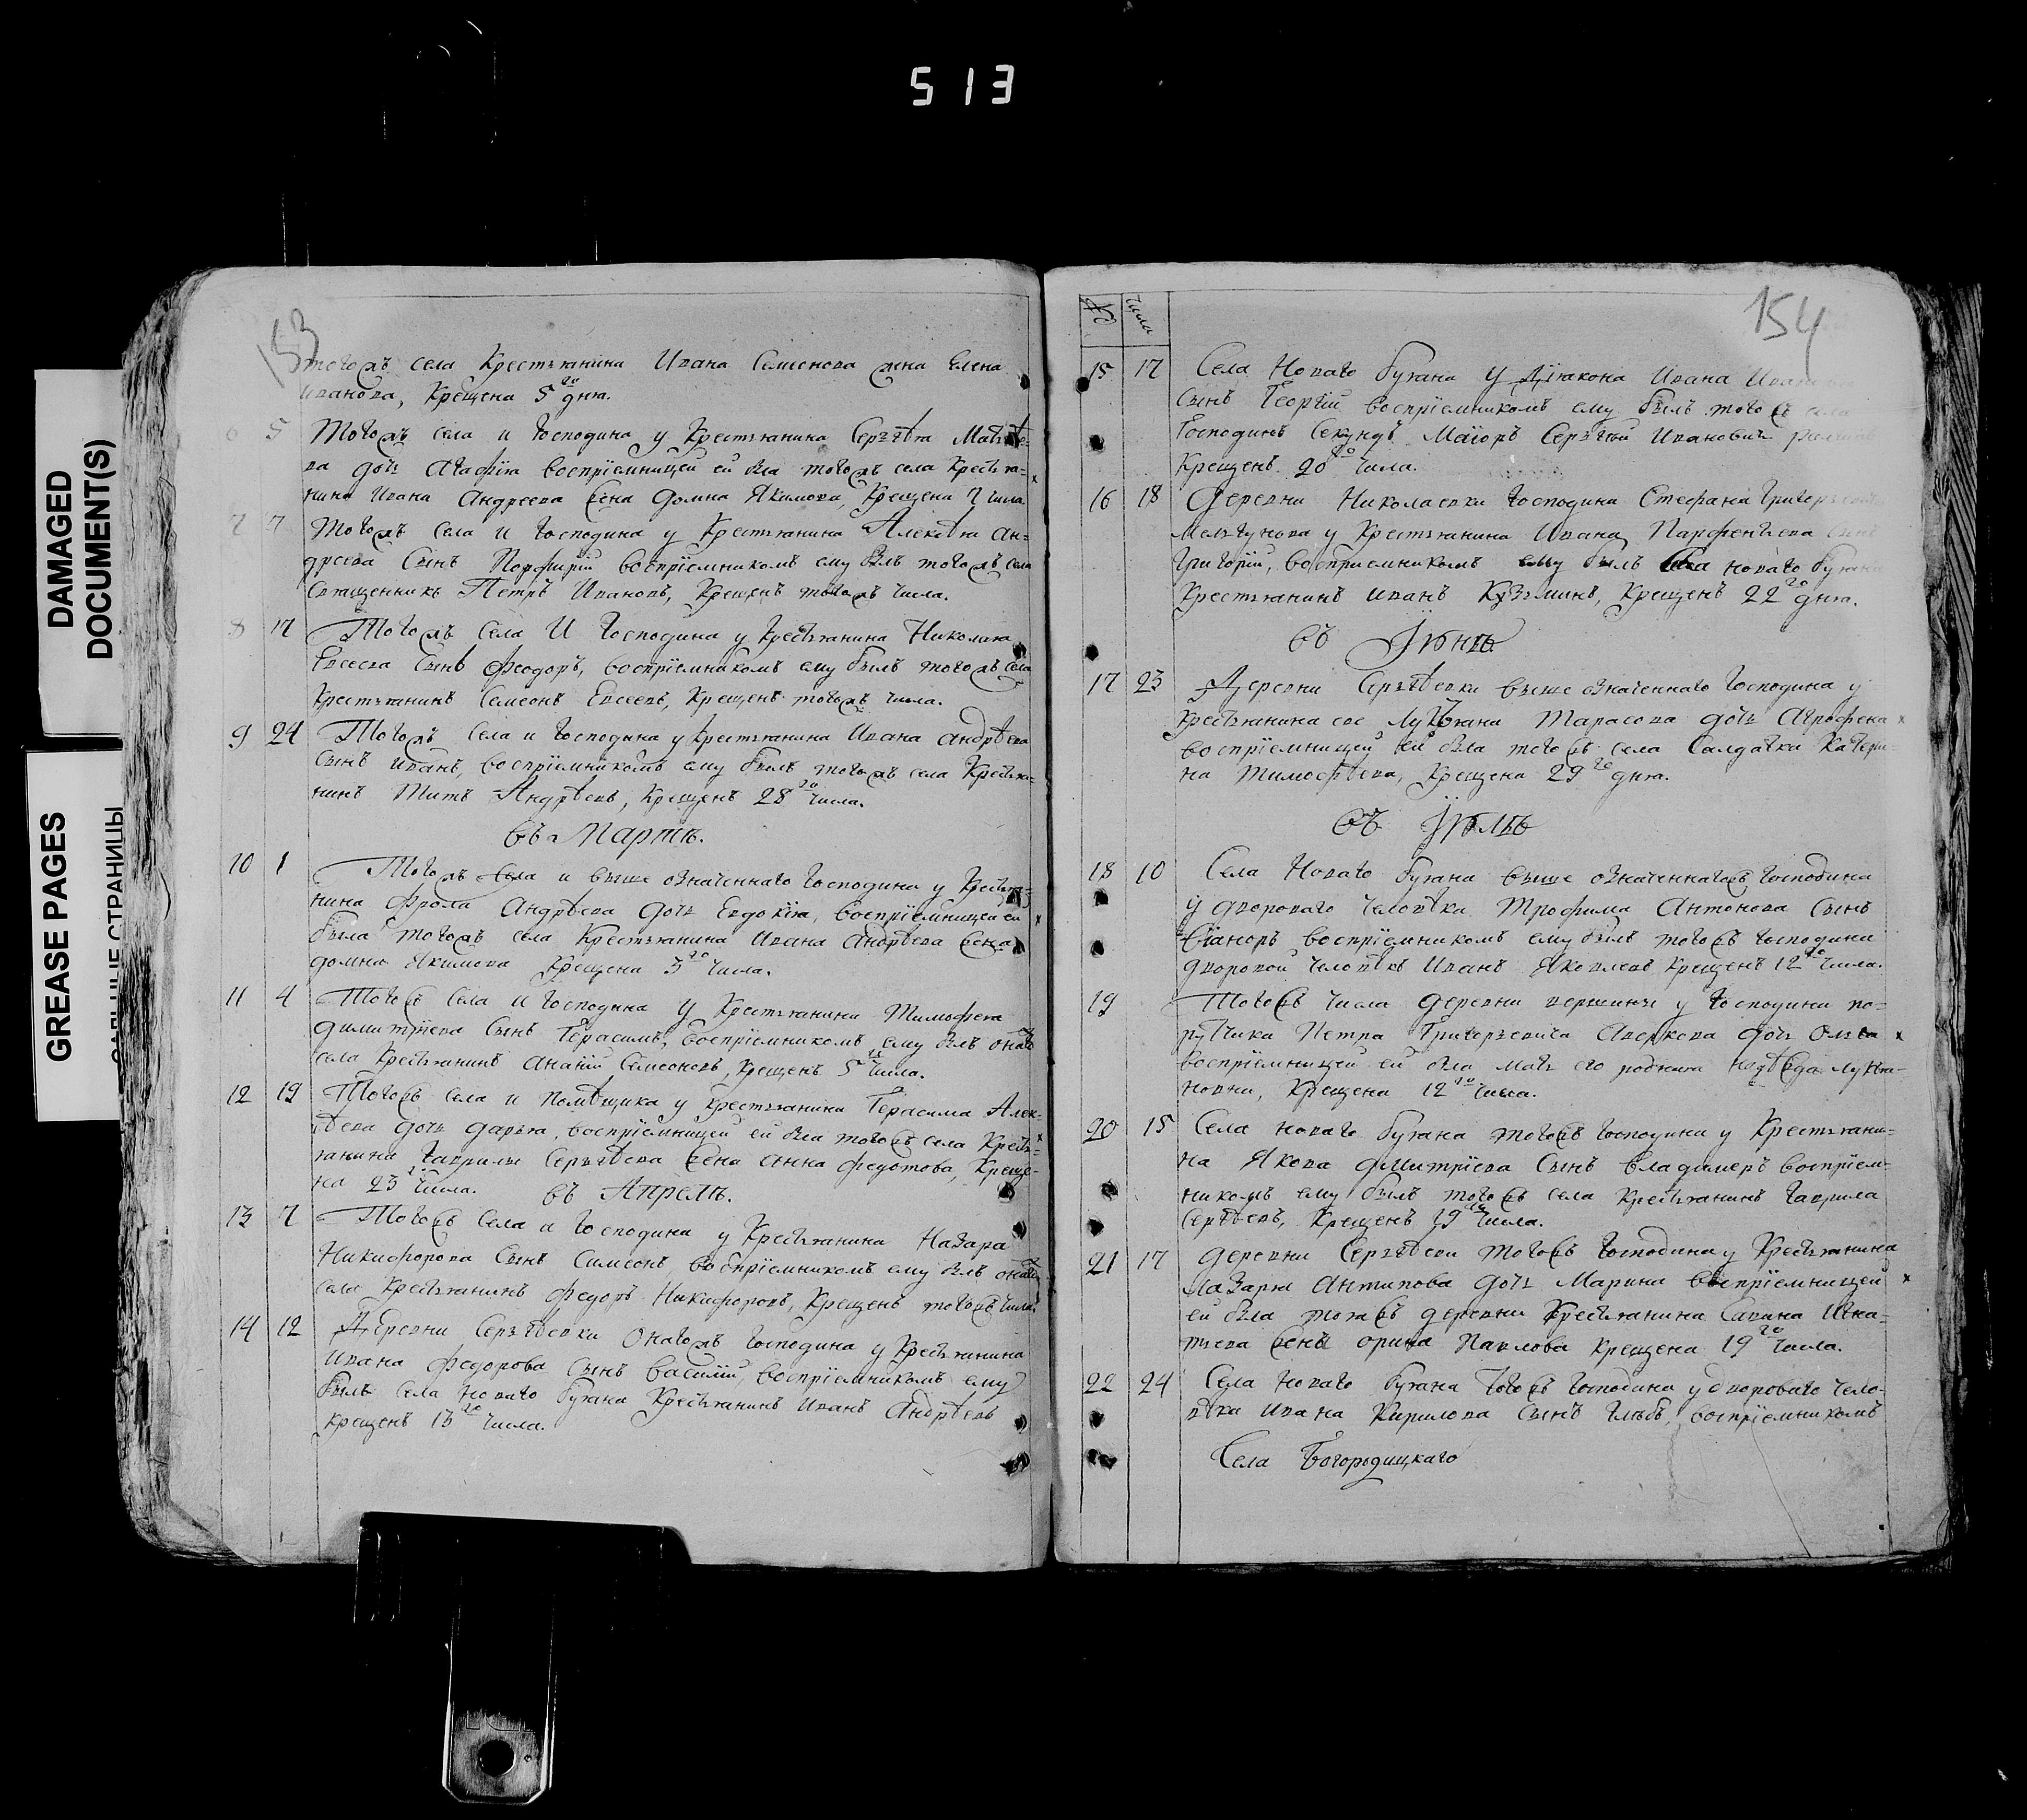 513
DAMAGED
DOCUMENT(S)
GREASE PAGES
САЛЬНЫЕ СТРАНИЦЫ
153
тогожъ села Крестьянина Ивана Семенова жена Елена
Иванова, Крещена 5го дня.
6 5 Тогожъ села и Господина у Крестьянина Сергѣя Матвѣе-
ва дочь Агафїя воспрїемницей ей была тогожъ села Крестья-
нина Ивана Андреева жена Домна Якимова, Крещена 7 числа
7 7 Тогожъ села и Господина у Крестьянина Алексѣя Ан-
дреева Сынъ Порфирїй воспрїемникомъ ему былъ тогожъ села
Священникъ Петръ Ивановъ, Крещенъ тогожъ числа.
8 17 Тогожъ Села И Господина у Крестьянина Николая
Евсеева Сынъ Феодоръ, воспрїемникомъ ему былъ тогожъ села
Крестьянинъ Семионъ Евсеевъ, Крещенъ тогожъ числа.
9 24 Тогожъ Села и Господина у Крестьянина Ивана Андрѣева
Сынъ Иванъ, воспрїемникомъ ему былъ тогожъ села Крестья-
нинъ Титъ Андрѣевъ, Крещенъ 28го числа.
въ Мартѣ.
10 1 Тогожъ Села и выше означеннаго Господина у Крестья-
нина Фрола Андрѣева дочь Евдокїя, воспрїемницей ей
была тогожъ села Крестьянина Ивана Андрѣева жена
домна Якимова Крещена 3го числа.
11 4 Тогожъ Села и Господина у Крестьянина Тимофея
димитрїева Сынъ Герасимъ, воспрїемникомъ ему былъ онаго
села Крестьянинъ Ананїй Семеоновъ, Крещенъ 5го числа.
12 19 Тогожъ Села и Помѣщика у Крестьянина Герасима Алек-
ѣева дочь дарья, воспрїемницей ей была тогожъ села Кресть-
янина Гаврилы Сергѣева жена Анна федотова, Креще-
на 23го числа.
въ Апрелѣ.
13 7 Тогожъ Села и Господина у Крестьянина Назара
Никифорова Сынъ Симеонъ, воспрїемникомъ ему былъ онаго
села Крестьянинъ федоръ Никифоровъ, Крещенъ тогожъ числа
14 12 Деревни Сергѣевки Онагожъ Господина у Крестьянина
Ивана федорова Сынъ василїй, воспрїемникомъ ему
былъ Села Новаго бутана Крестьянинъ Иванъ Андрѣевъ
крещенъ 13го числа.
№ числа
154
15 17 Села Новаго бутана у Дїакона Ивана
Сынъ Георгїй воспрїемникомъ ему былъ тогожъ села
Господинъ Секундъ Маїоръ Сергѣй Ивановичь
Крещенъ 20го числа.
16 18 Деревни Николаевки Господина Стефана
Мельгунова у Крестьянина Ивана Парфентьева Сынъ
Григорїй, воспрїемникомъ ему былъ Села новаго бутана
Крестьянинъ Иванъ Кузьминъ, Крещенъ 22го дня.
въ Їюнѣ
17 23 Деревни Сергѣевки выше означеннаго Господина у
Крестьянина Лукьяна Тарасова дочь Агрофена
воспрїемницей ей была тогожъ села Салдатка Катери-
на Тимофѣева, Крещена 29го дня.
въ Їюлѣ
18 10 Села Новаго бутана выше означеннагожъ Господина
у двороваго человѣка Трофима Антонова Сынъ
Вїаноръ воспрїемникомъ ему былъ тогожъ Господина
дворовой человѣкъ Иванъ Яковлевъ Крещенъ 12го числа.
19 Тогожъ числа деревни вершины у Господина по-
рутчика Петра Григорьевича Аверкова дочь Ольга
воспрїемницей ей была мать его родная надѣжда Лукїа-
новна, Крещена 12го числа.
20 15 Села новаго бутана тогожъ Господина у Крестьяни-
на Якова дмитрїева Сынъ Владимеръ воспрїем-
никомъ ему былъ тогожъ села крестьянинъ Гаврила
Сергѣевъ, Крещенъ 19го числа.
21 17 деревни Сергѣевки тогожъ Господина у Крестьянина
Лазаря Антипова дочь Марина воспрїемницей
ей была тогожъ деревни Крестьянина Савина Игна-
тьева жена орина Павлова Крещена 19го числа.
22 24 Села Новаго бутана тогожъ Господина у двороваго чело-
вѣка Ивана Кирилова Сынъ Глѣбъ, воспрїемникомъ
Села Богородицкаго